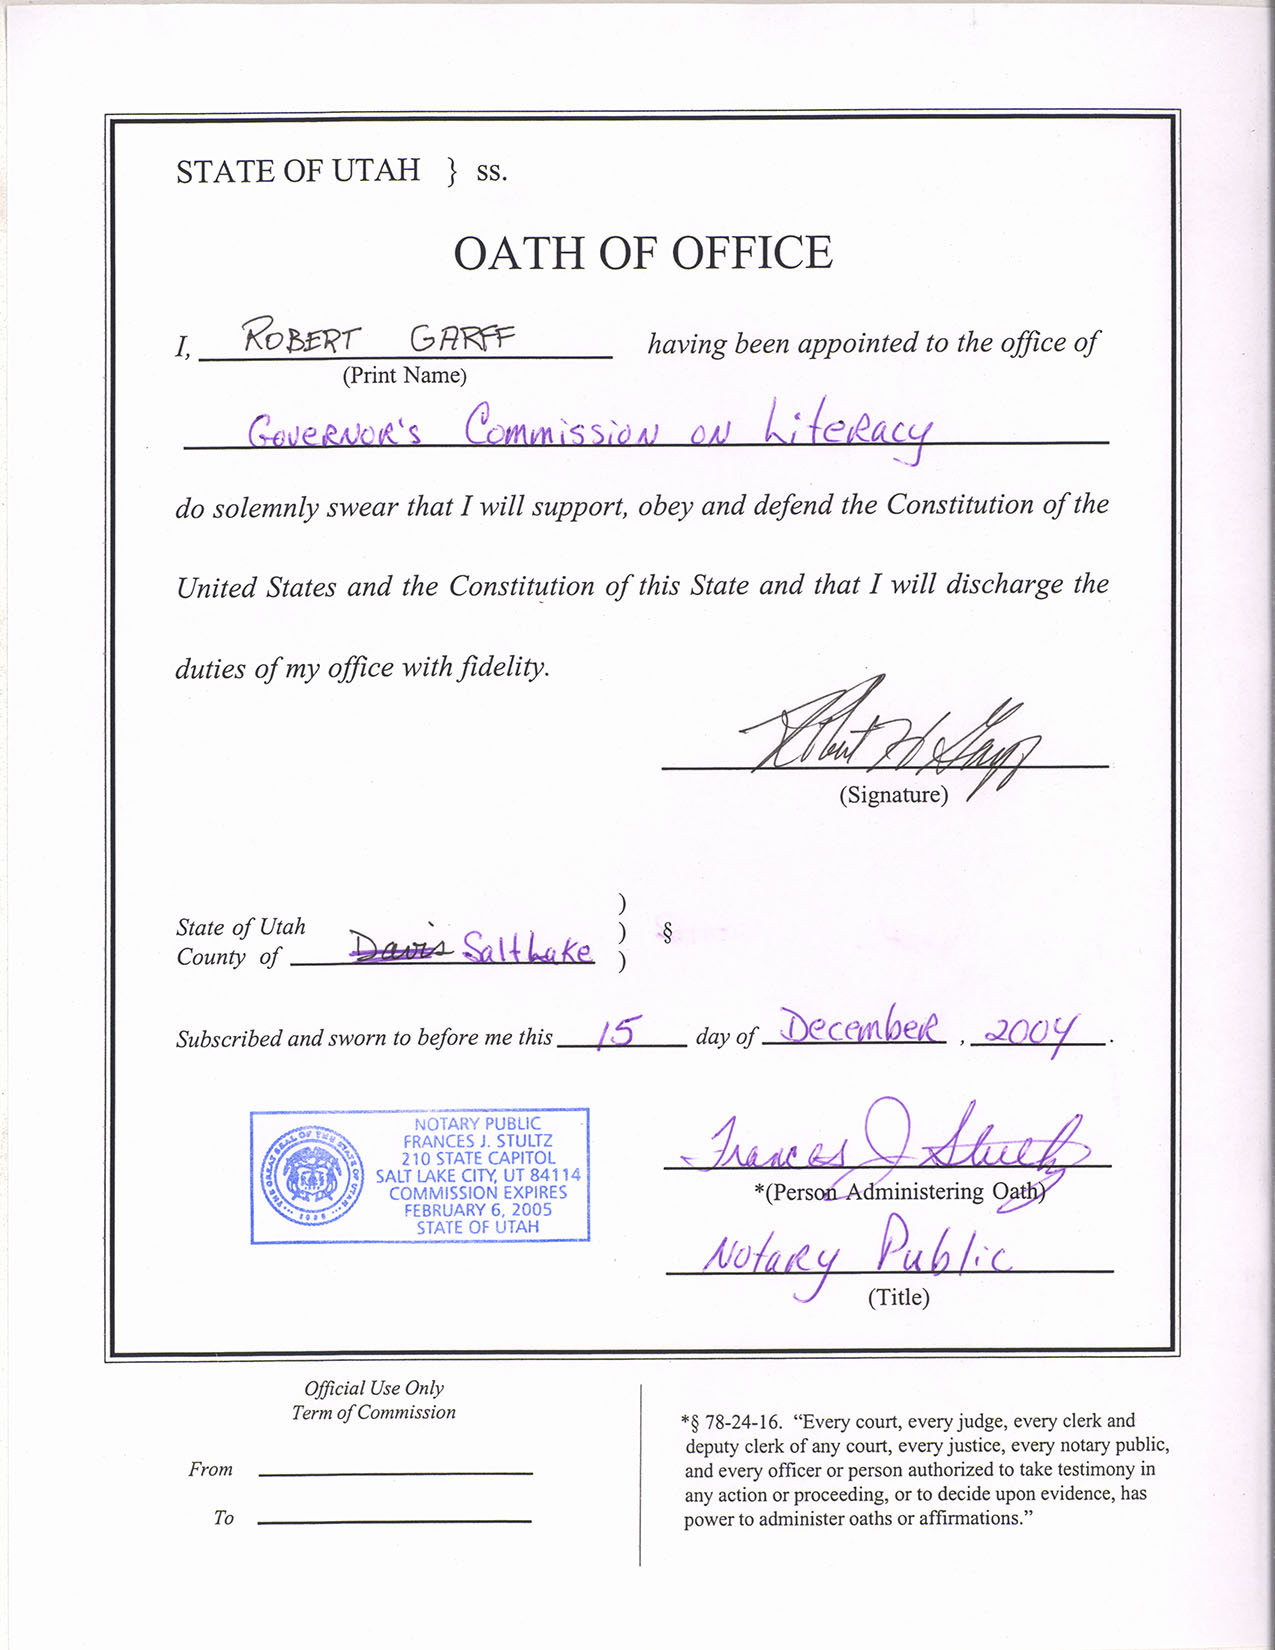 STATE OF UTAH } ss.
OATH OF OFFICE
I, ROBERT GARFF having been appointed to the office of
(Print Name)
Governor's Commission on Literacy
do solemnly swear that I will support, obey and defend the Constitution of the
United States and the Constitution of this State and that I will discharge the
duties of my office with fidelity.
Robert H Garff
(Signature)
)
State of Utah ) §
County of Davis Salt Lake )
Subscribed and sworn to before me this 15 day of December, 2004.
NOTARY PUBLIC
FRANCES J. STULTZ
210 STATE CAPITOL
SALT LAKE CITY, UT 84114
COMMISSION EXPIRES
FEBRUARY 6, 2005
STATE OF UTAH
THE GREAT SEAL OF THE STATE OF UTAH
1896
Frances J Stultz
*(Person Administering Oath)
Notary Public
(Title)
Official Use Only
Term of Commission
From
To
*§ 78-24-16. “Every court, every judge, every clerk and
deputy clerk of any court, every justice, every notary public,
and every officer or person authorized to take testimony in
any action or proceeding, or to decide upon evidence, has
power to administer oaths or affirmations.”